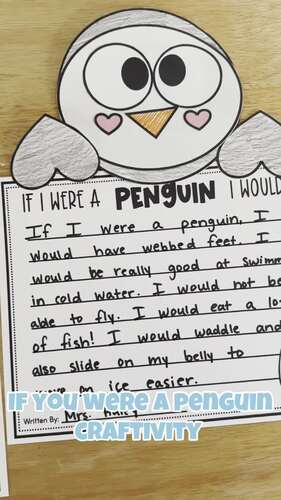 IF I WERE A PENGUIN I WOULD
If I were a penguin, I
would have webbed feet. I
would be really good at swimm
in cold water. I would not be
able to fly. I would eat a lo
of fish! I would waddle and
also slide on my belly to
on ice easier.
Written By: Mrs.
IF YOU WERE A PENGUIN
CRAFTIVITY